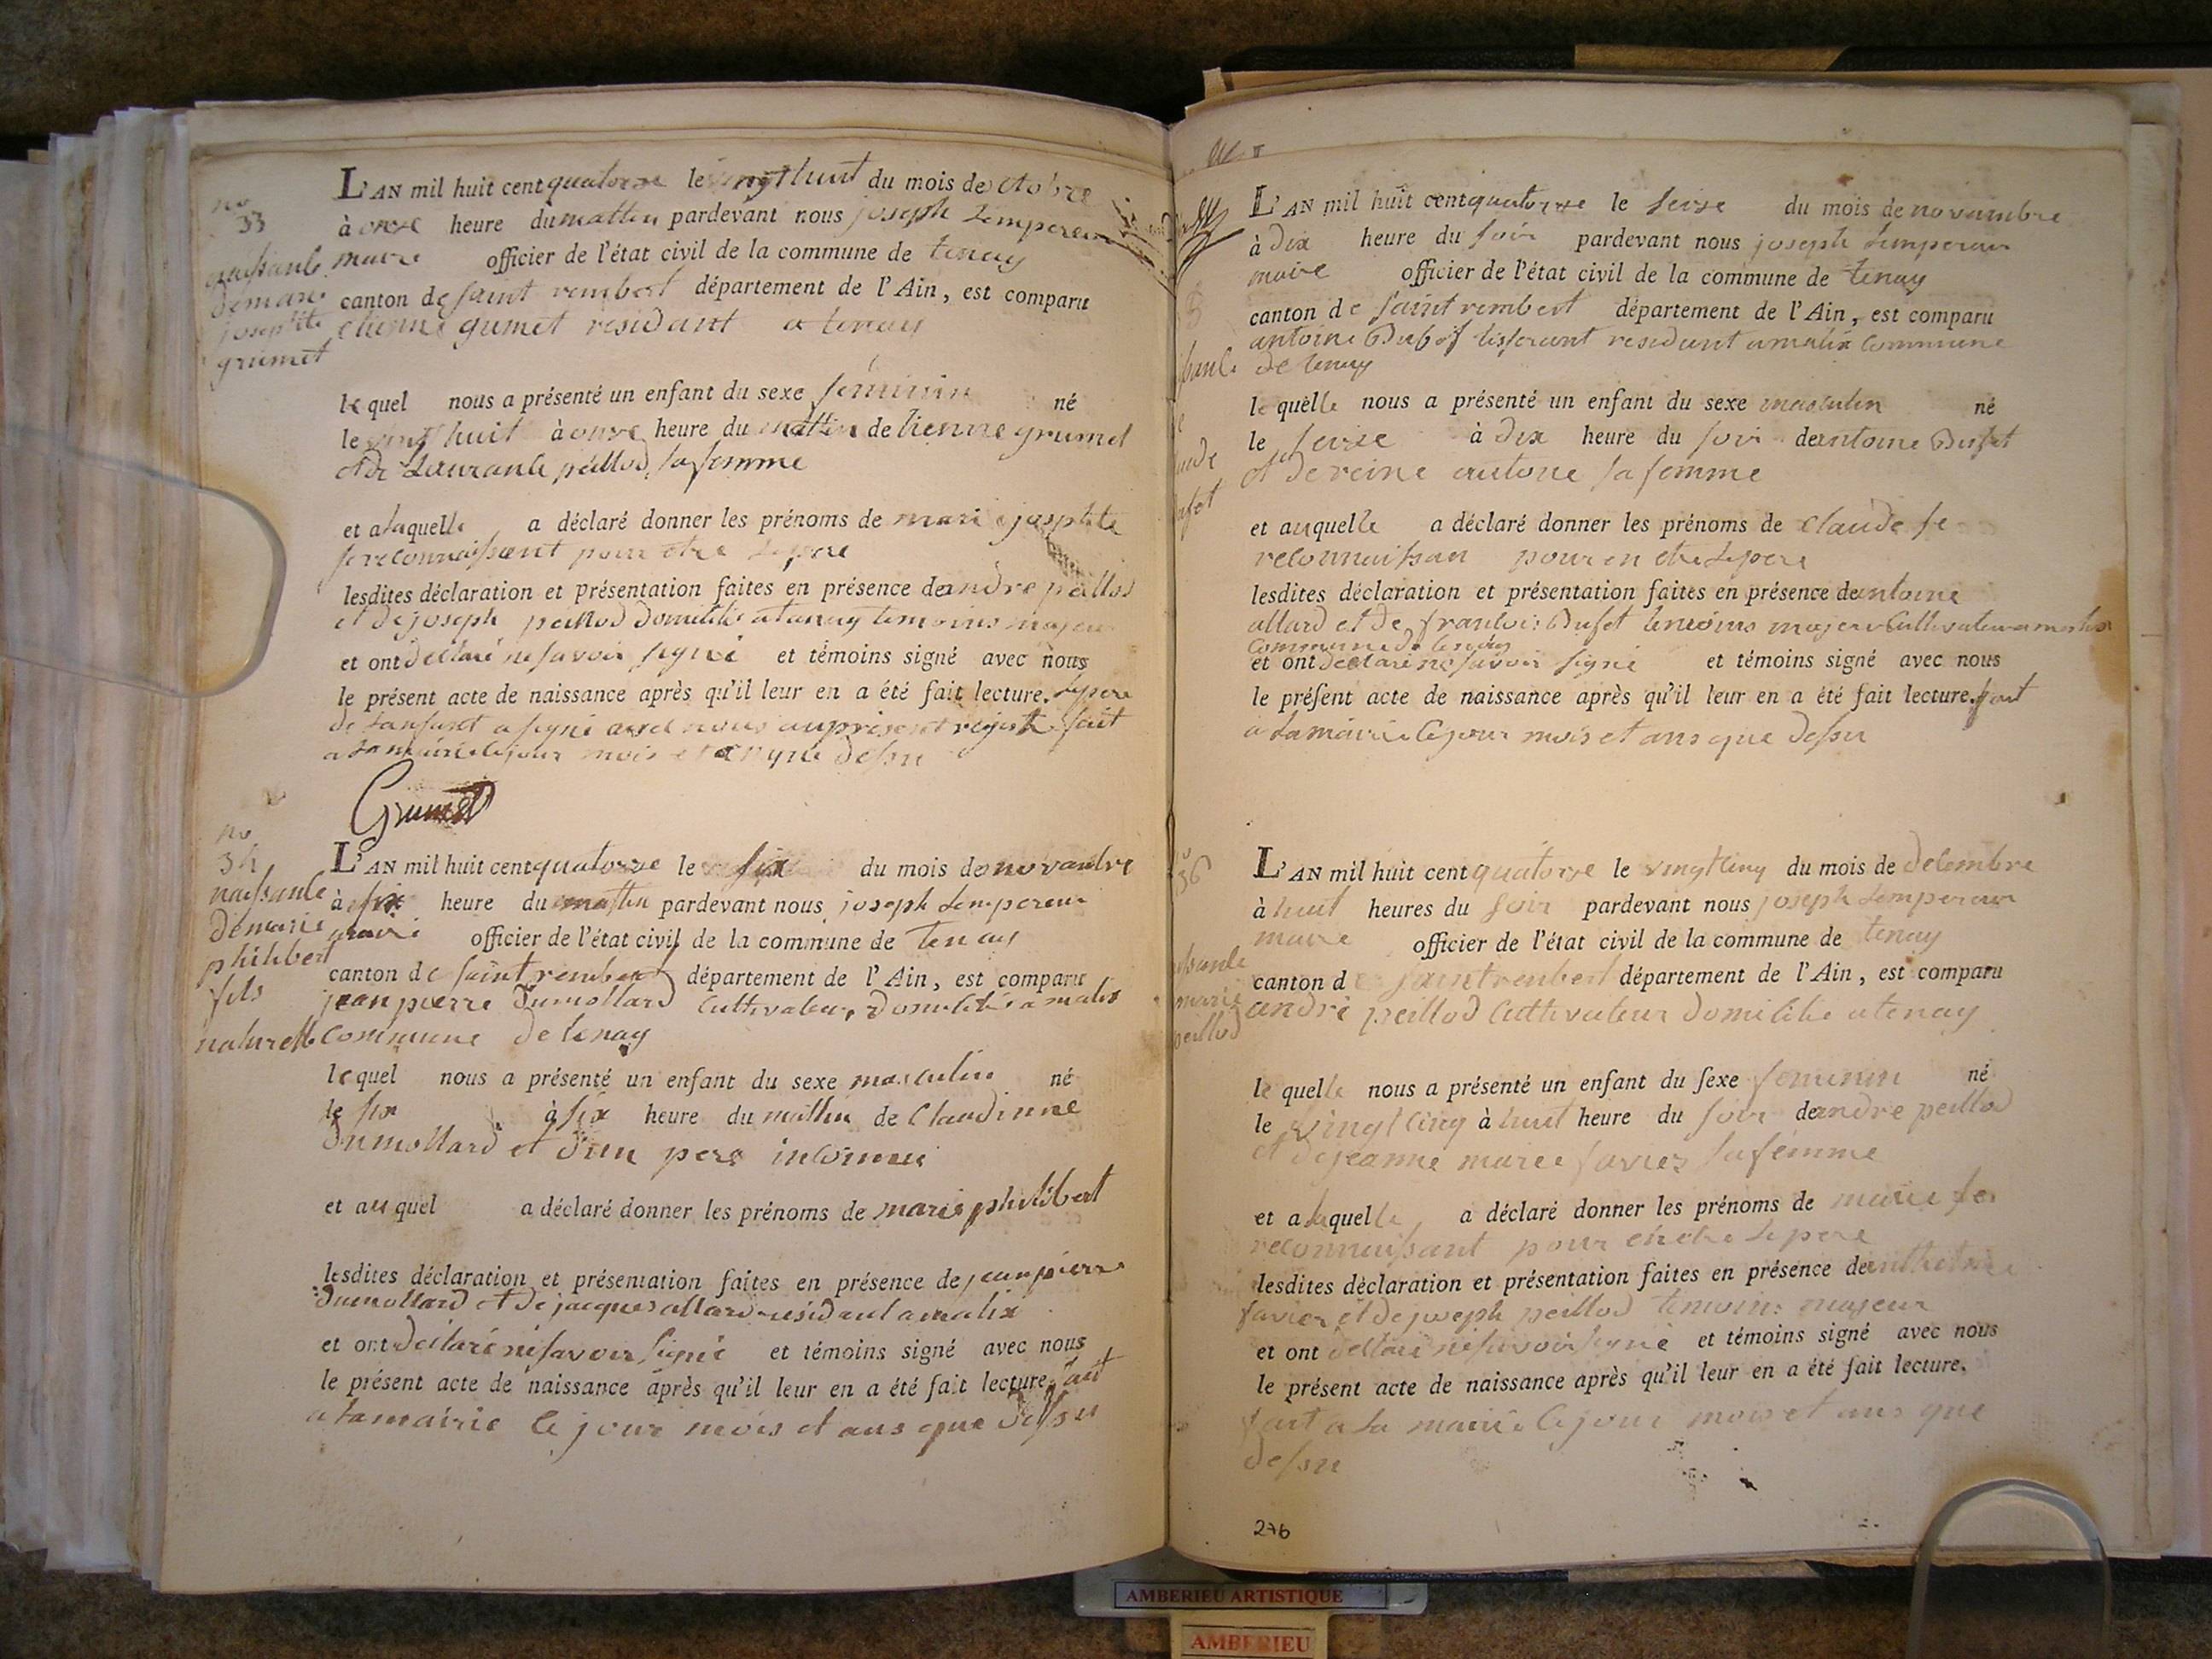 no
33
naissance
de marie
josephte
grumet
L'AN mil huit cent quatorze le vingt huit du mois de octobre
à onze heure du mattin pardevant nous joseph Lempereur
maire officier de l'état civil de la commune de tenay
canton de saint rembert département de l'Ain, est comparu
etienne gumet residant a tenay
le quel nous a présenté un enfant du sexe feminin né
le vingt huit à onze heure du mattin de etienne grumet
et de Laurance peillod sa femme
et a laquelle a déclaré donner les prénoms de marie josephte
se reconnaissant pour etre le pere
lesdites déclaration et présentation faites en présence de andre peillod
et de joseph peillod domicilie a tenay temoins majeur
et ont declaré ne savoir signé et témoins signé avec nous
le présent acte de naissance après qu'il leur en a été fait lecture. le pere
de lanfant a signé avec nous au present registe fait
a la mairie le jour mois et an que dessu
Grumet
no
34
naissance
de marie
philibert
fils
naturelle
L'AN mil huit cent quatorze le six du mois de novanbre
à six heure du mattin pardevant nous joseph Lempereur
maire officier de l'état civil de la commune de tenay
canton de saint rembert département de l'Ain, est comparu
jean pierre Dumollard Cultivateur domicilié a malix
commune de tenay
le quel nous a présenté un enfant du sexe masculin né
le six à six heure du mattin de Claudinne
Dumollard et d'un pere inconnu
et au quel a déclaré donner les prénoms de marie philibert
lesdites déclaration et présentation faites en présence de jean pierre
dumollard et de jacques allard residant a malix
et ont declaré ne savoir signé et témoins signé avec nous
le présent acte de naissance après qu'il leur en a été fait lecture. fait
a la mairie le jour mois et ans que dessu
L'AN mil huit cent quatorze le seize du mois de novambre
à dix heure du soir pardevant nous joseph Lempereur
maire officier de l'état civil de la commune de tenay
canton de saint rembert département de l'Ain, est comparu
antoine Dufet tisserant residant a malix commune
de tenay
le quelle nous a présenté un enfant du sexe masculin né
le seize à dix heure du soir de antoine Dufet
et de reine autone sa femme
et auquelle a déclaré donner les prénoms de claude se
reconnaissan pour en etre le pere
lesdites déclaration et présentation faites en présence de antoine
allard et de francois Dufet temoins majeur Cultivateur a malix
commune de tenay
et ont declaré ne savoir signé et témoins signé avec nous
le présent acte de naissance après qu'il leur en a été fait lecture. fait
a la mairie le jour mois et ans que dessu
36
marie
peillod
L'AN mil huit cent quatorze le vingt cinq du mois de decembre
à huit heures du soir pardevant nous joseph Lempereur
maire officier de l'état civil de la commune de tenay
canton de saint renbert département de l'Ain, est comparu
andré peillod Cultivateur domicilié a tenay
le quelle nous a présenté un enfant du sexe feminin né
le vingt cinq à huit heure du soir de andre peillod
et de jeanne marie favier sa femme
et a laquelle a déclaré donner les prénoms de marie se
reconnaissant pour en etre le pere
lesdites déclaration et présentation faites en présence de
favier et de joseph peillod temoins majeur
et ont declaré ne savoir signé et témoins signé avec nous
le présent acte de naissance après qu'il leur en a été fait lecture.
fait a la mairie le jour mois et ans que
dessu
276
AMBERIEU ARTISTIQUE
AMBERIEU